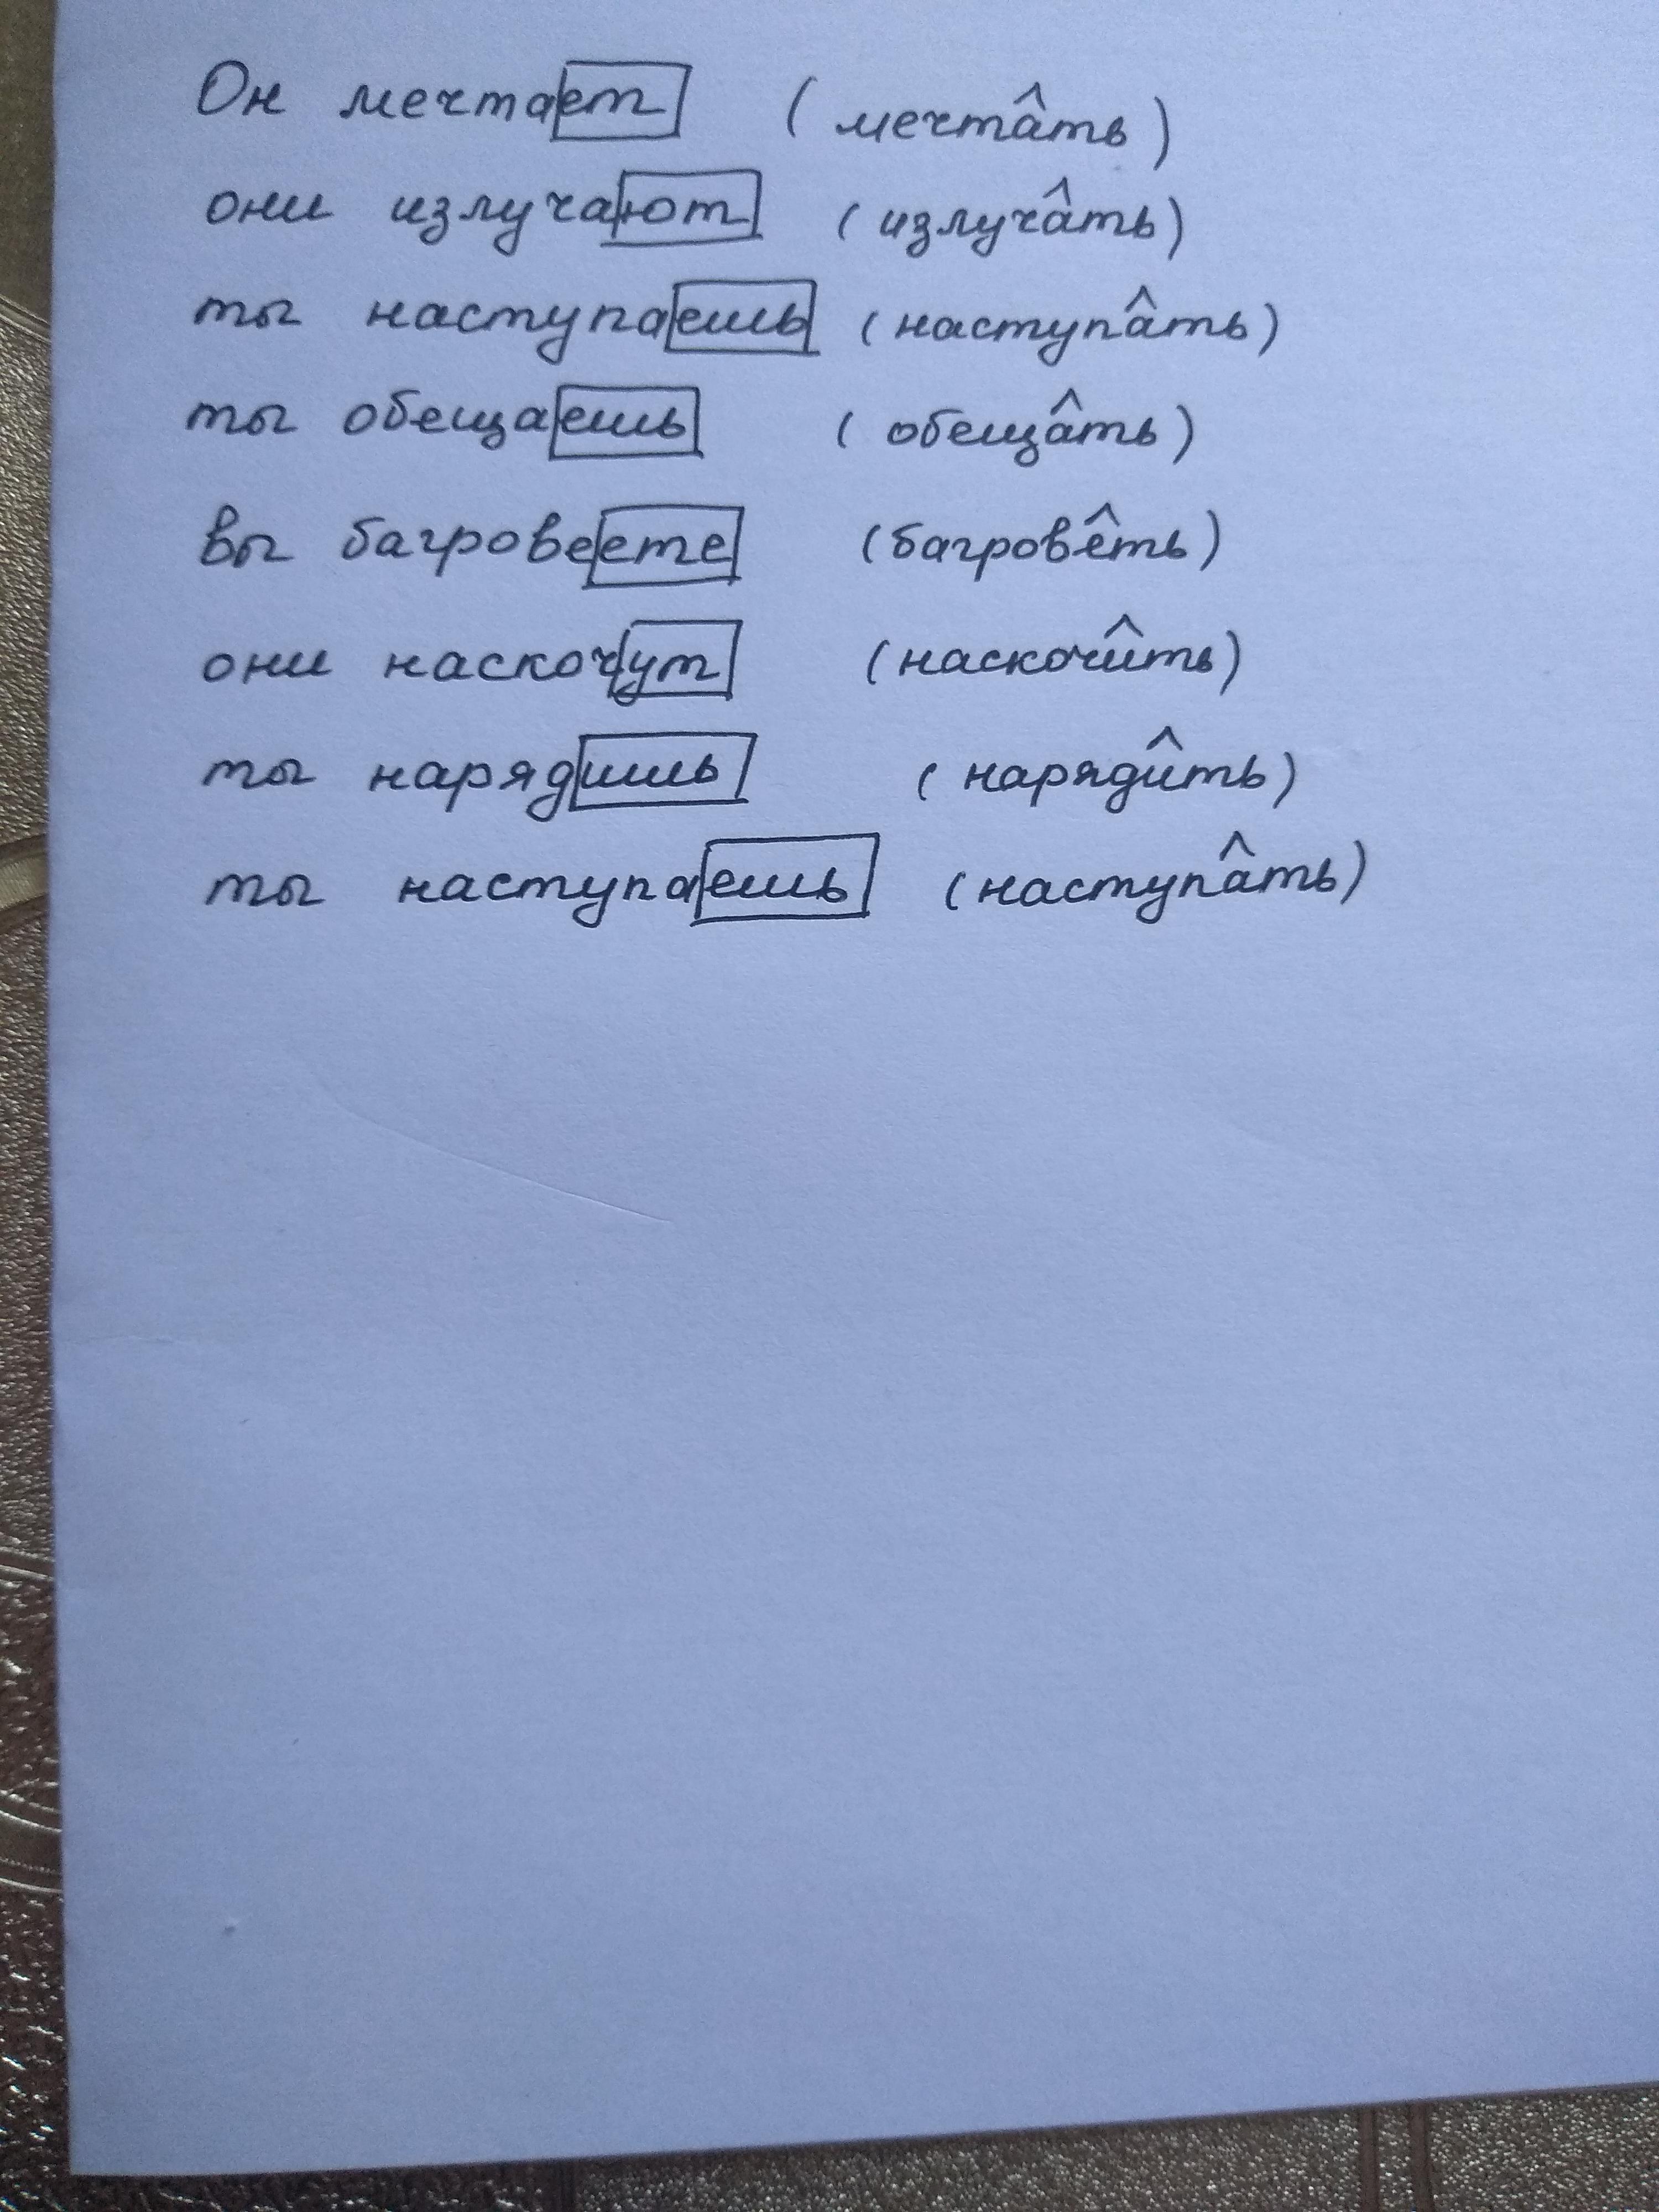 Он мечтает (мечтать)
они излучают (излучать)
ты наступаешь (наступать)
ты обещаешь (обещать)
вы багровеете (багроветь)
они наскочут (наскочить)
ты нарядишь (нарядить)
ты наступаешь (наступать)